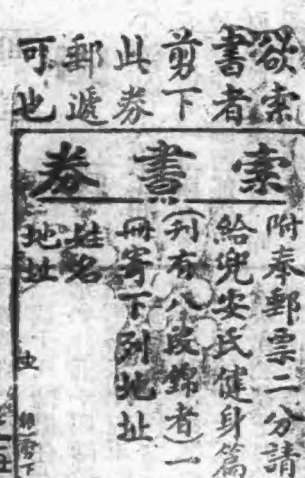 欲索
書者
剪下
此券
郵遞
可也
索書券
附奉郵票二分請
給兜安氏健身篇
(刊有八段錦者)一
冊寄下列地址
姓名
地址